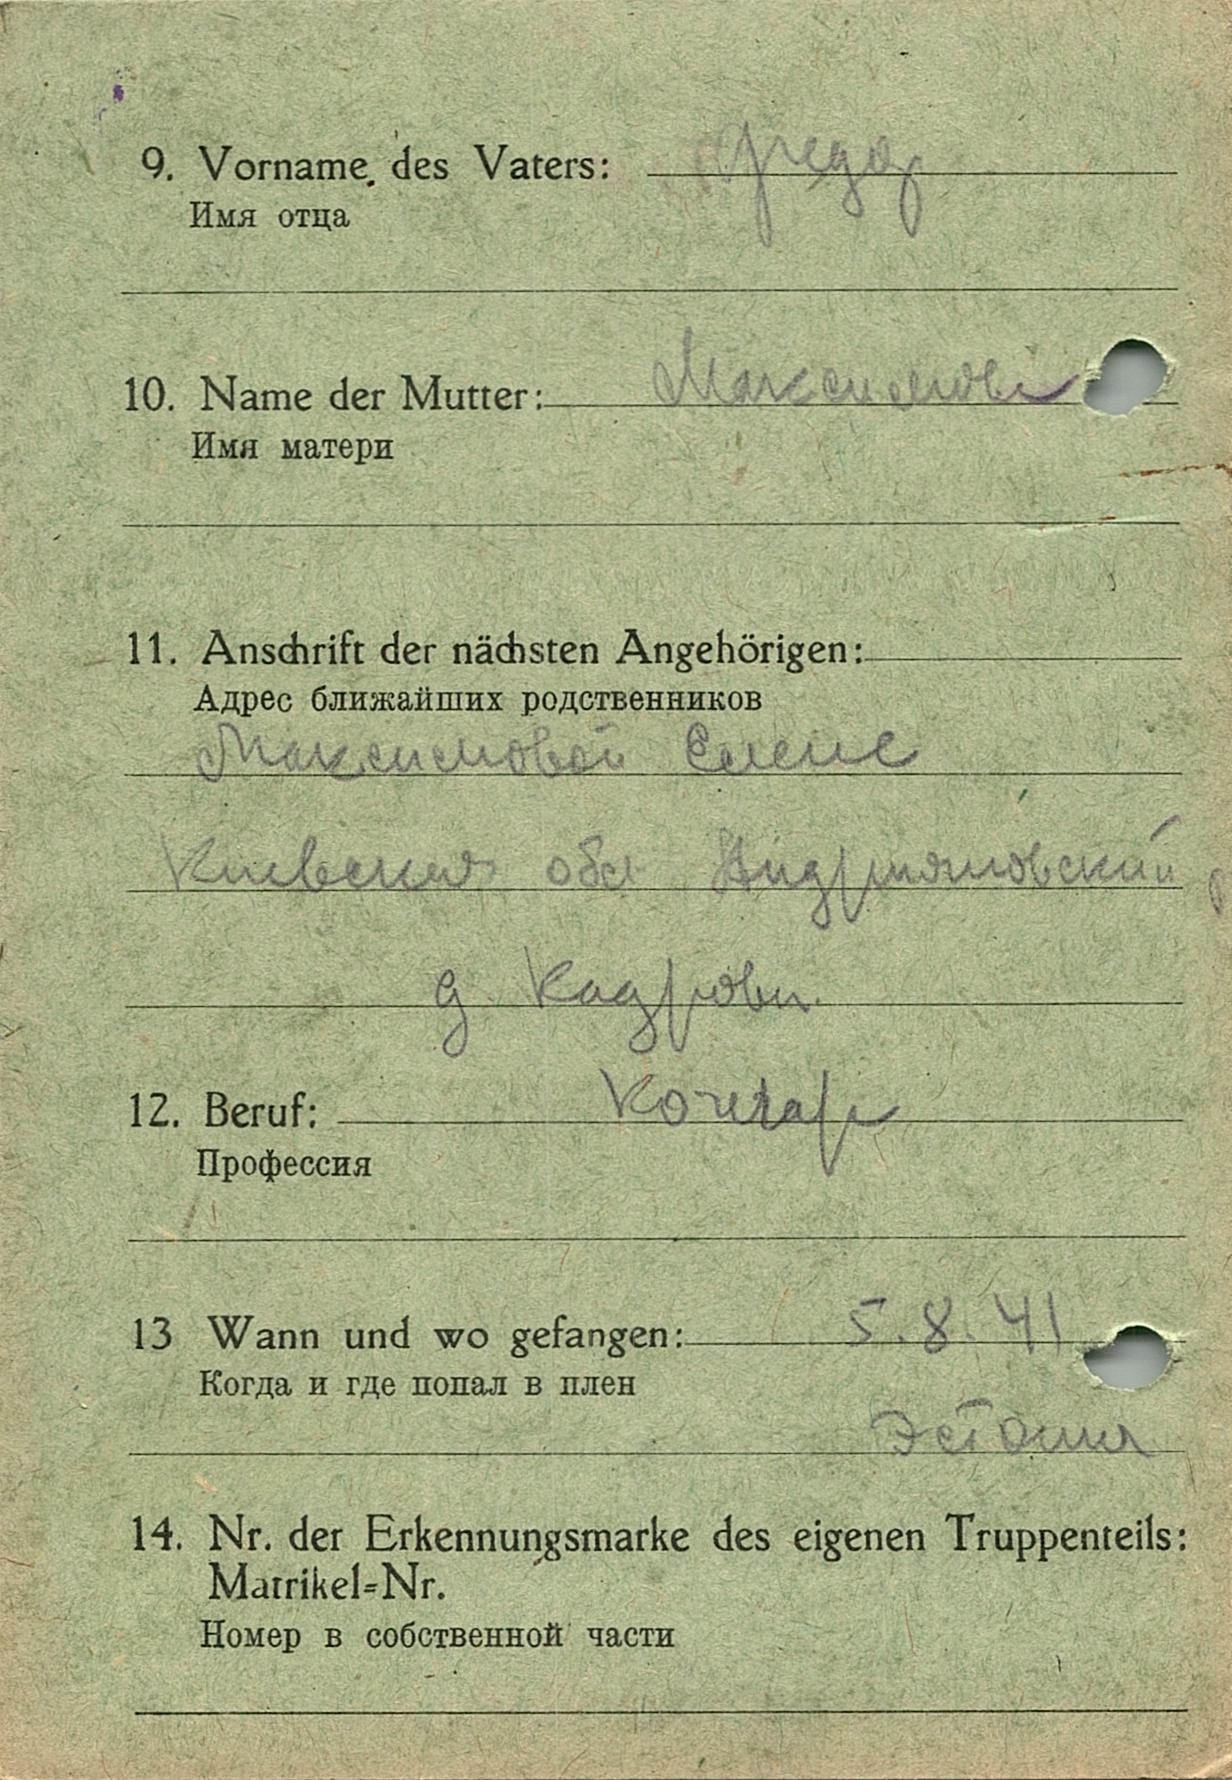 9. Vorname des Vaters: Федор
Имя отца
10. Name der Mutter: Максимова
Имя матери
11. Anschrift der nächsten Angehörigen:
Адрес ближайших родственников
Максимовой Елене
Киевская обл
д
12. Beruf: Кочегар
Профессия
13 Wann und wo gefangen: 5.8.41
Когда и где попал в плен
Эстония
14. Nr. der Erkennungsmarke des eigenen Truppenteils:
Matrikel=Nr.
Номер в собственной части